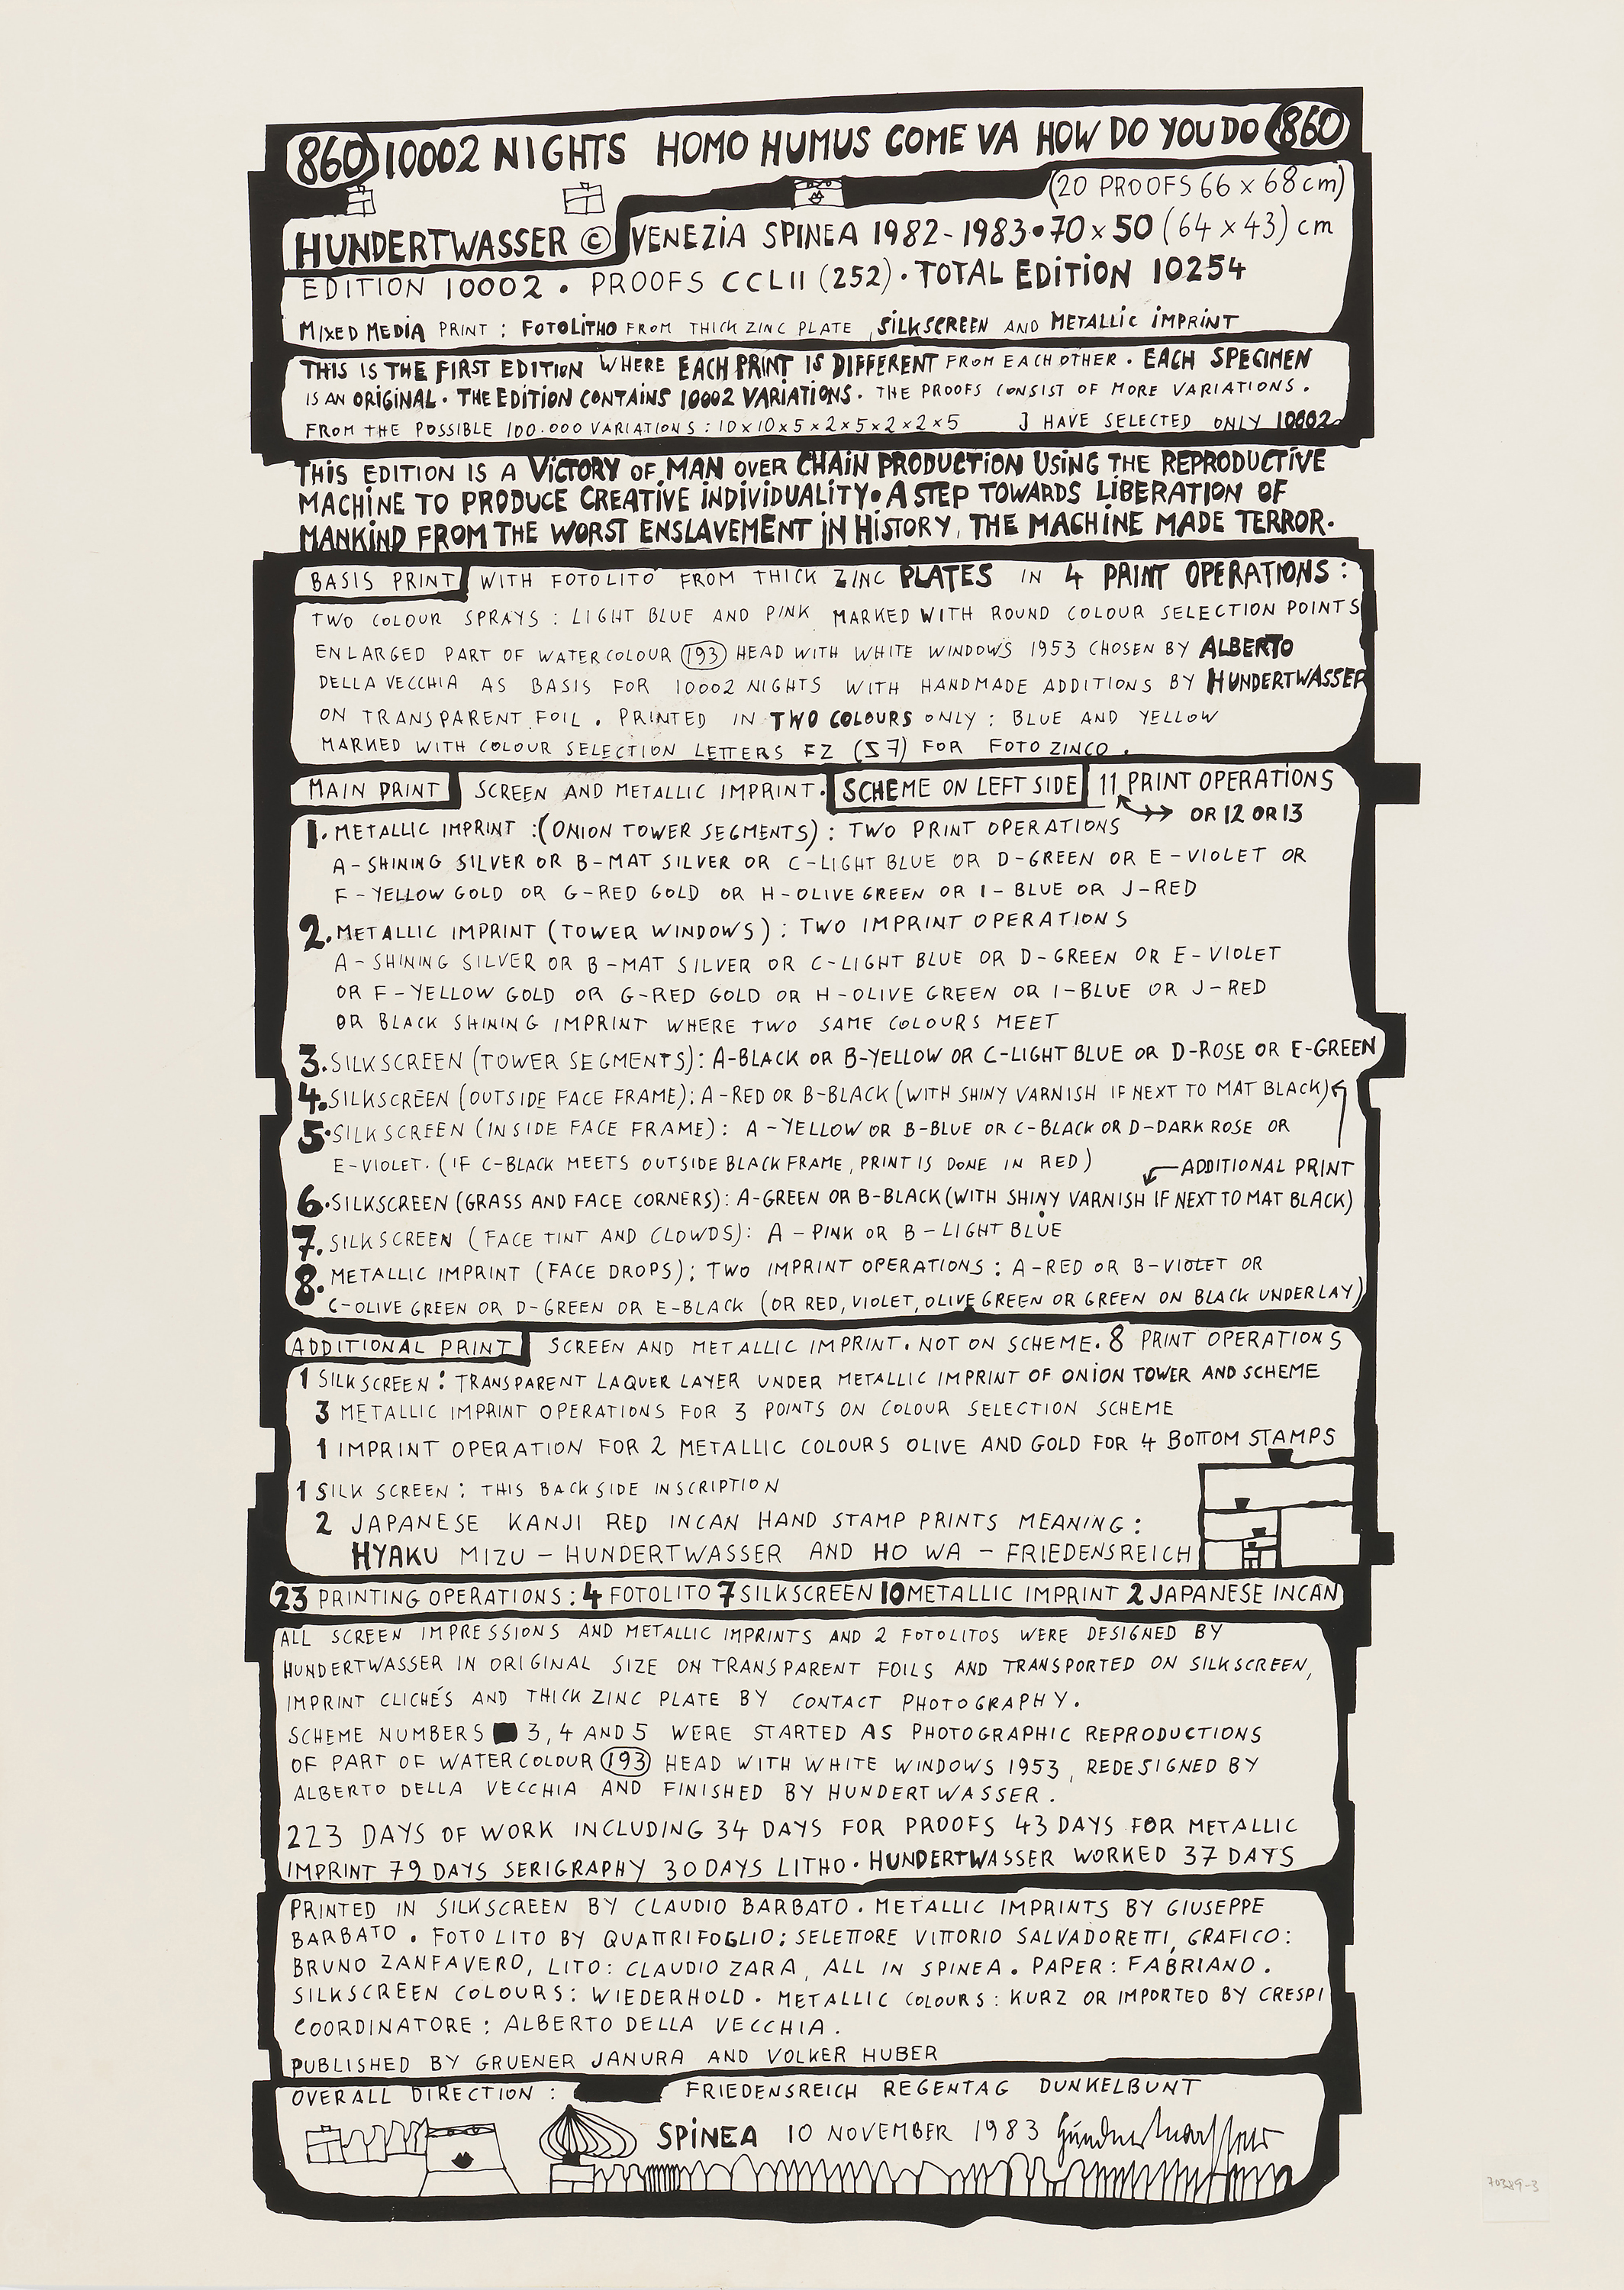 860 10002 NIGHTS HOMO HUMUS COME VA HOW DO YOU DO 860
(20 PROOFS 66 x 68 cm)
HUNDERTWASSER © VENEZIA SPINEA 1982-1983 • 70 x 50 (64 x 43) cm
EDITION 10002 • PROOFS CCLII (252) • TOTAL EDITION 10254
MIXED MEDIA PRINT : FOTOLITHO FROM THICK ZINC PLATE , SILKSCREEN AND METALLIC IMPRINT
THIS IS THE FIRST EDITION WHERE EACH PRINT IS DIFFERENT FROM EACH OTHER • EACH SPECIMEN
IS AN ORIGINAL • THE EDITION CONTAINS 10002 VARIATIONS • THE PROOFS CONSIST OF MORE VARIATIONS .
FROM THE POSSIBLE 100.000 VARIATIONS : 10x10x5x2x5x2x2x5 J HAVE SELECTED ONLY 10002
THIS EDITION IS A VICTORY OF MAN OVER CHAIN PRODUCTION USING THE REPRODUCTIVE
MACHINE TO PRODUCE CREATIVE INDIVIDUALITY • A STEP TOWARDS LIBERATION OF
MANKIND FROM THE WORST ENSLAVEMENT IN HISTORY, THE MACHINE MADE TERROR.
BASIS PRINT WITH FOTOLITO FROM THICK ZINC PLATES IN 4 PRINT OPERATIONS :
TWO COLOUR SPRAYS : LIGHT BLUE AND PINK MARKED WITH ROUND COLOUR SELECTION POINTS
ENLARGED PART OF WATERCOLOUR 193 HEAD WITH WHITE WINDOWS 1953 CHOSEN BY ALBERTO
DELLA VECCHIA AS BASIS FOR 10002 NIGHTS WITH HANDMADE ADDITIONS BY HUNDERTWASSER
ON TRANSPARENT FOIL . PRINTED IN TWO COLOURS ONLY : BLUE AND YELLOW
MARKED WITH COLOUR SELECTION LETTERS FZ (S7) FOR FOTO ZINCO .
MAIN PRINT SCREEN AND METALLIC IMPRINT • SCHEME ON LEFT SIDE 11 PRINT OPERATIONS
OR 12 OR 13
1. METALLIC IMPRINT : (ONION TOWER SEGMENTS) : TWO PRINT OPERATIONS
A-SHINING SILVER OR B-MAT SILVER OR C-LIGHT BLUE OR D-GREEN OR E-VIOLET OR
F-YELLOW GOLD OR G-RED GOLD OR H-OLIVE GREEN OR I-BLUE OR J-RED
2. METALLIC IMPRINT (TOWER WINDOWS) : TWO IMPRINT OPERATIONS
A-SHINING SILVER OR B-MAT SILVER OR C-LIGHT BLUE OR D-GREEN OR E-VIOLET
OR F-YELLOW GOLD OR G-RED GOLD OR H-OLIVE GREEN OR I-BLUE OR J-RED
OR BLACK SHINING IMPRINT WHERE TWO SAME COLOURS MEET
3. SILKSCREEN (TOWER SEGMENTS): A-BLACK OR B-YELLOW OR C-LIGHT BLUE OR D-ROSE OR E-GREEN
4. SILKSCREEN (OUTSIDE FACE FRAME): A-RED OR B-BLACK (WITH SHINY VARNISH IF NEXT TO MAT BLACK)
5. SILKSCREEN (INSIDE FACE FRAME) : A-YELLOW OR B-BLUE OR C-BLACK OR D-DARK ROSE OR
E-VIOLET. (IF C-BLACK MEETS OUTSIDE BLACK FRAME, PRINT IS DONE IN RED) ADDITIONAL PRINT
6. SILKSCREEN (GRASS AND FACE CORNERS): A-GREEN OR B-BLACK (WITH SHINY VARNISH IF NEXT TO MAT BLACK)
7. SILKSCREEN (FACE TINT AND CLOWDS): A-PINK OR B-LIGHT BLUE
8. METALLIC IMPRINT (FACE DROPS); TWO IMPRINT OPERATIONS : A-RED OR B-VIOLET OR
C-OLIVE GREEN OR D-GREEN OR E-BLACK (OR RED, VIOLET, OLIVE GREEN OR GREEN ON BLACK UNDERLAY)
ADDITIONAL PRINT SCREEN AND METALLIC IMPRINT. NOT ON SCHEME. 8 PRINT OPERATIONS
1 SILKSCREEN : TRANSPARENT LAQUER LAYER UNDER METALLIC IMPRINT OF ONION TOWER AND SCHEME
3 METALLIC IMPRINT OPERATIONS FOR 3 POINTS ON COLOUR SELECTION SCHEME
1 IMPRINT OPERATION FOR 2 METALLIC COLOURS OLIVE AND GOLD FOR 4 BOTTOM STAMPS
1 SILK SCREEN : THIS BACKSIDE INSCRIPTION
2 JAPANESE KANJI RED INCAN HAND STAMP PRINTS MEANING :
HYAKU MIZU - HUNDERTWASSER AND HO WA - FRIEDENSREICH
23 PRINTING OPERATIONS : 4 FOTOLITO 7 SILKSCREEN 10 METALLIC IMPRINT 2 JAPANESE INCAN
ALL SCREEN IMPRESSIONS AND METALLIC IMPRINTS AND 2 FOTOLITOS WERE DESIGNED BY
HUNDERTWASSER IN ORIGINAL SIZE ON TRANSPARENT FOILS AND TRANSPORTED ON SILKSCREEN,
IMPRINT CLICHÉS AND THICK ZINC PLATE BY CONTACT PHOTOGRAPHY.
SCHEME NUMBERS 3, 4 AND 5 WERE STARTED AS PHOTOGRAPHIC REPRODUCTIONS
OF PART OF WATERCOLOUR 193 HEAD WITH WHITE WINDOWS 1953, REDESIGNED BY
ALBERTO DELLA VECCHIA AND FINISHED BY HUNDERTWASSER .
223 DAYS OF WORK INCLUDING 34 DAYS FOR PROOFS 43 DAYS FOR METALLIC
IMPRINT 79 DAYS SERIGRAPHY 30 DAYS LITHO • HUNDERTWASSER WORKED 37 DAYS
PRINTED IN SILKSCREEN BY CLAUDIO BARBATO . METALLIC IMPRINTS BY GIUSEPPE
BARBATO . FOTO LITO BY QUATTRIFOGLIO : SELETTORE VITTORIO SALVADORETTI, GRAFICO :
BRUNO ZANFAVERO, LITO : CLAUDIO ZARA, ALL IN SPINEA . PAPER : FABRIANO .
SILKSCREEN COLOURS : WIEDERHOLD . METALLIC COLOURS : KURZ OR IMPORTED BY CRESPI
COORDINATORE : ALBERTO DELLA VECCHIA .
PUBLISHED BY GRUENER JANURA AND VOLKER HUBER
OVERALL DIRECTION : FRIEDENSREICH REGENTAG DUNKELBUNT
SPINEA 10 NOVEMBER 1983 Hundertwasser
70389-3